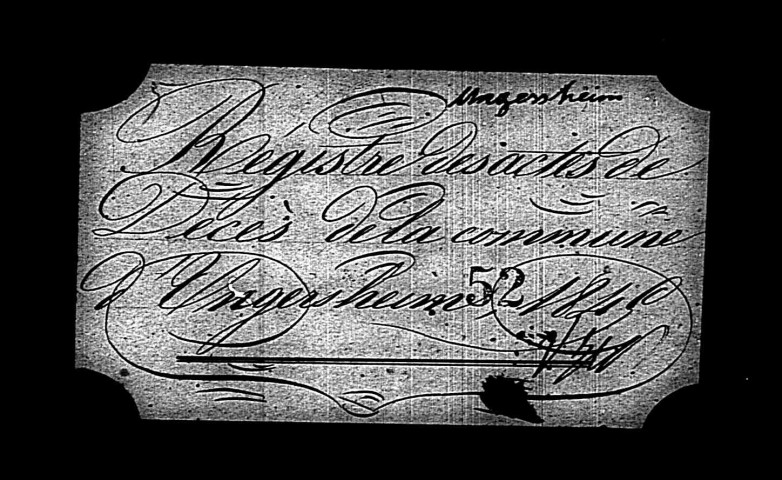 Ungersheim
Régistre des actes de
Décès de la commune
d'Ungersheim 52